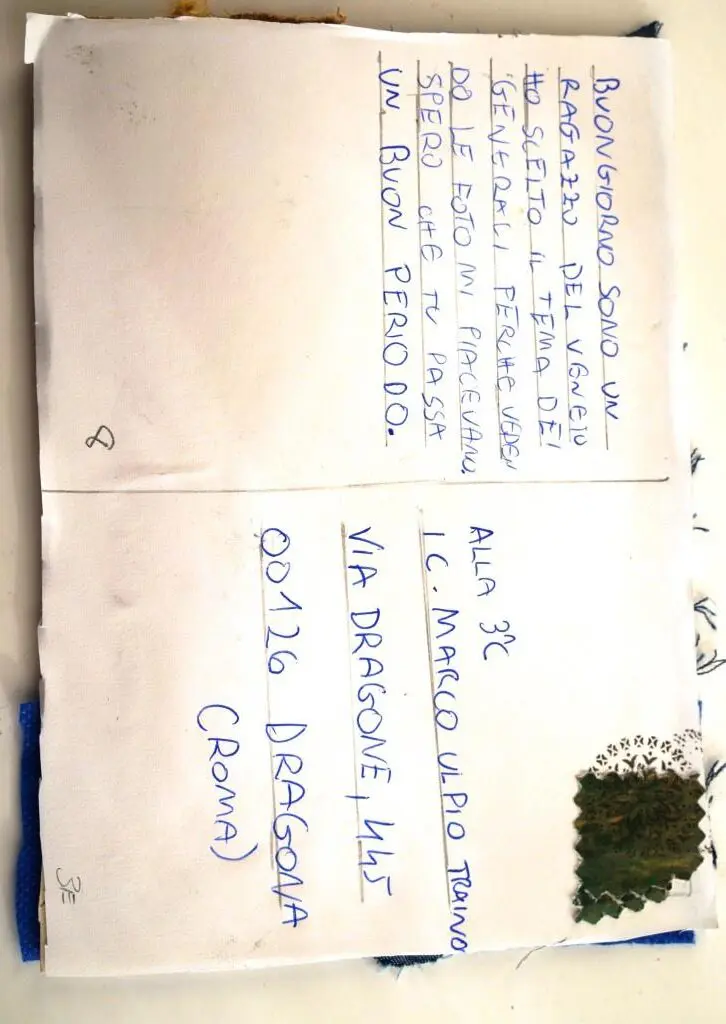 BUONGIORNO SONO UN
RAGAZZO DEL VENETO
HO SCELTO IL TEMA DEI
GENERALI PERCHE VEDEN
DO LE FOTO MI PIACEVANO.
SPERO CHE TU PASSA
UN BUON PERIODO.
8
ALLA 3°C
IC. MARCO ULPIO TRAINO
VIA DRAGONE, 445
00126 DRAGONA
(ROMA)
3E